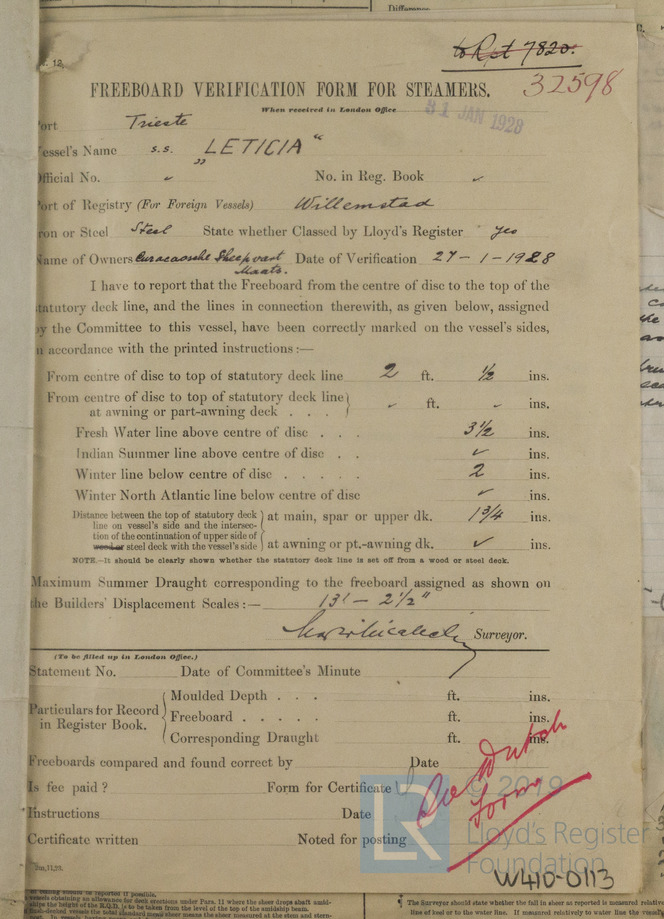 Difference
to Rpt 7820.
. 12,
32598
FREEBOARD VERIFICATION FORM FOR STEAMERS.
When received in London Office 31 JAN 1928
ort Trieste
essel's Name s.s. "LETICIA"
fficial No. ✓ No. in Reg. Book ✓
ort of Registry (For Foreign Vessels) Willemstad
ron or Steel Steel State whether Classed by Lloyd's Register Yes
ame of Owners Curacaosche Scheepvaart Maats. Date of Verification 27-1-1928
I have to report that the Freeboard from the centre of disc to the top of the
tatutory deck line, and the lines in connection therewith, as given below, assigned
y the Committee to this vessel, have been correctly marked on the vessel's sides,
n accordance with the printed instructions:—
From centre of disc to top of statutory deck line 2 ft. ½ ins.
From centre of disc to top of statutory deck line
at awning or part-awning deck . . . ✓ ft. ✓ ins.
Fresh Water line above centre of disc . . . 3½ ins.
Indian Summer line above centre of disc . . ✓ ins.
Winter line below centre of disc . . . . . 2 ins.
Winter North Atlantic line below centre of disc ✓ ins.
Distance between the top of statutory deck
line on vessel's side and the intersec- at main, spar or upper dk. 1¾ ins.
tion of the continuation of upper side of
wood or steel deck with the vessel's side at awning or pt.-awning dk. ✓ ins.
NOTE.—It should be clearly shown whether the statutory deck line is set off from a wood or steel deck.
Maximum Summer Draught corresponding to the freeboard assigned as shown on
the Builders' Displacement Scales:— 13' - 2½"
Surveyor.
(To be filled up in London Office.)
Statement No. Date of Committee's Minute
Particulars for Record in Register Book.
Moulded Depth . . . ft. ins.
Freeboard . . . . . ft. ins.
Corresponding Draught ft. ins.
Freeboards compared and found correct by Date
Is fee paid? Form for Certificate
See Dutch
Form
Instructions Date
Certificate written Noted for posting
© 2019
LR
Lloyd's Register
Foundation
W410-0113
vessels obtaining an allowance for deck erections under Para. 11 where the sheer drops abaft amid-
ships the height of the R.Q.D. is to be taken from the level of the top of the amidship beam.
* The Surveyor should state whether the fall in sheer as reported is measured relatively to
line of keel or to the water line. If measured relatively to water line the vessel